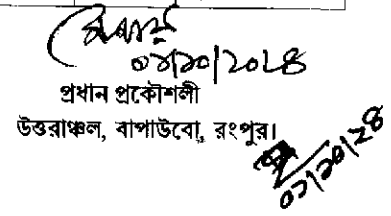 ০১/১০/২০২৪
প্রধান প্রকৌশলী
উত্তরাঞ্চল, বাপাউবো, রংপুর।
০১/১০/২৪